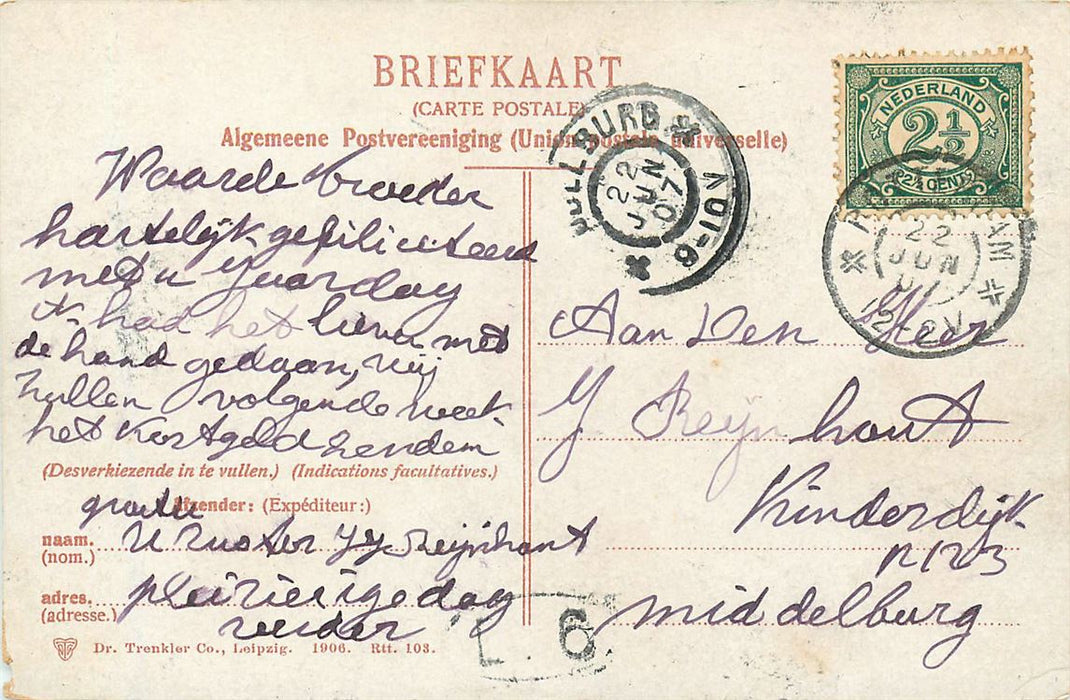 BRIEFKAART
(CARTE POSTALE)
Algemeene Postvereeniging (Union postale universelle)
NEDERLAND
2½
2½ CENT
22
JUN
07
22
JUN
12-2N
Waarde broeder
hartelijk gefiliciteerd
met u Jaardag
ik had het liever met
de hand gedaan, wij
zullen volgende week
het Kostgeld zenden
(Desverkiezende in te vullen.) (Indications facultatives.)
Afzender: (Expéditeur:)
groete
naam.
(nom.)
U Zuster JJ Reijnhout
adres.
(adresse.)
pleizierige dag
verder
Dr. Trenkler Co., Leipzig. 1906. Rtt. 103.
Aan Den Heer
J Reijnhout
Kinderdijk
N 123
middelburg
6